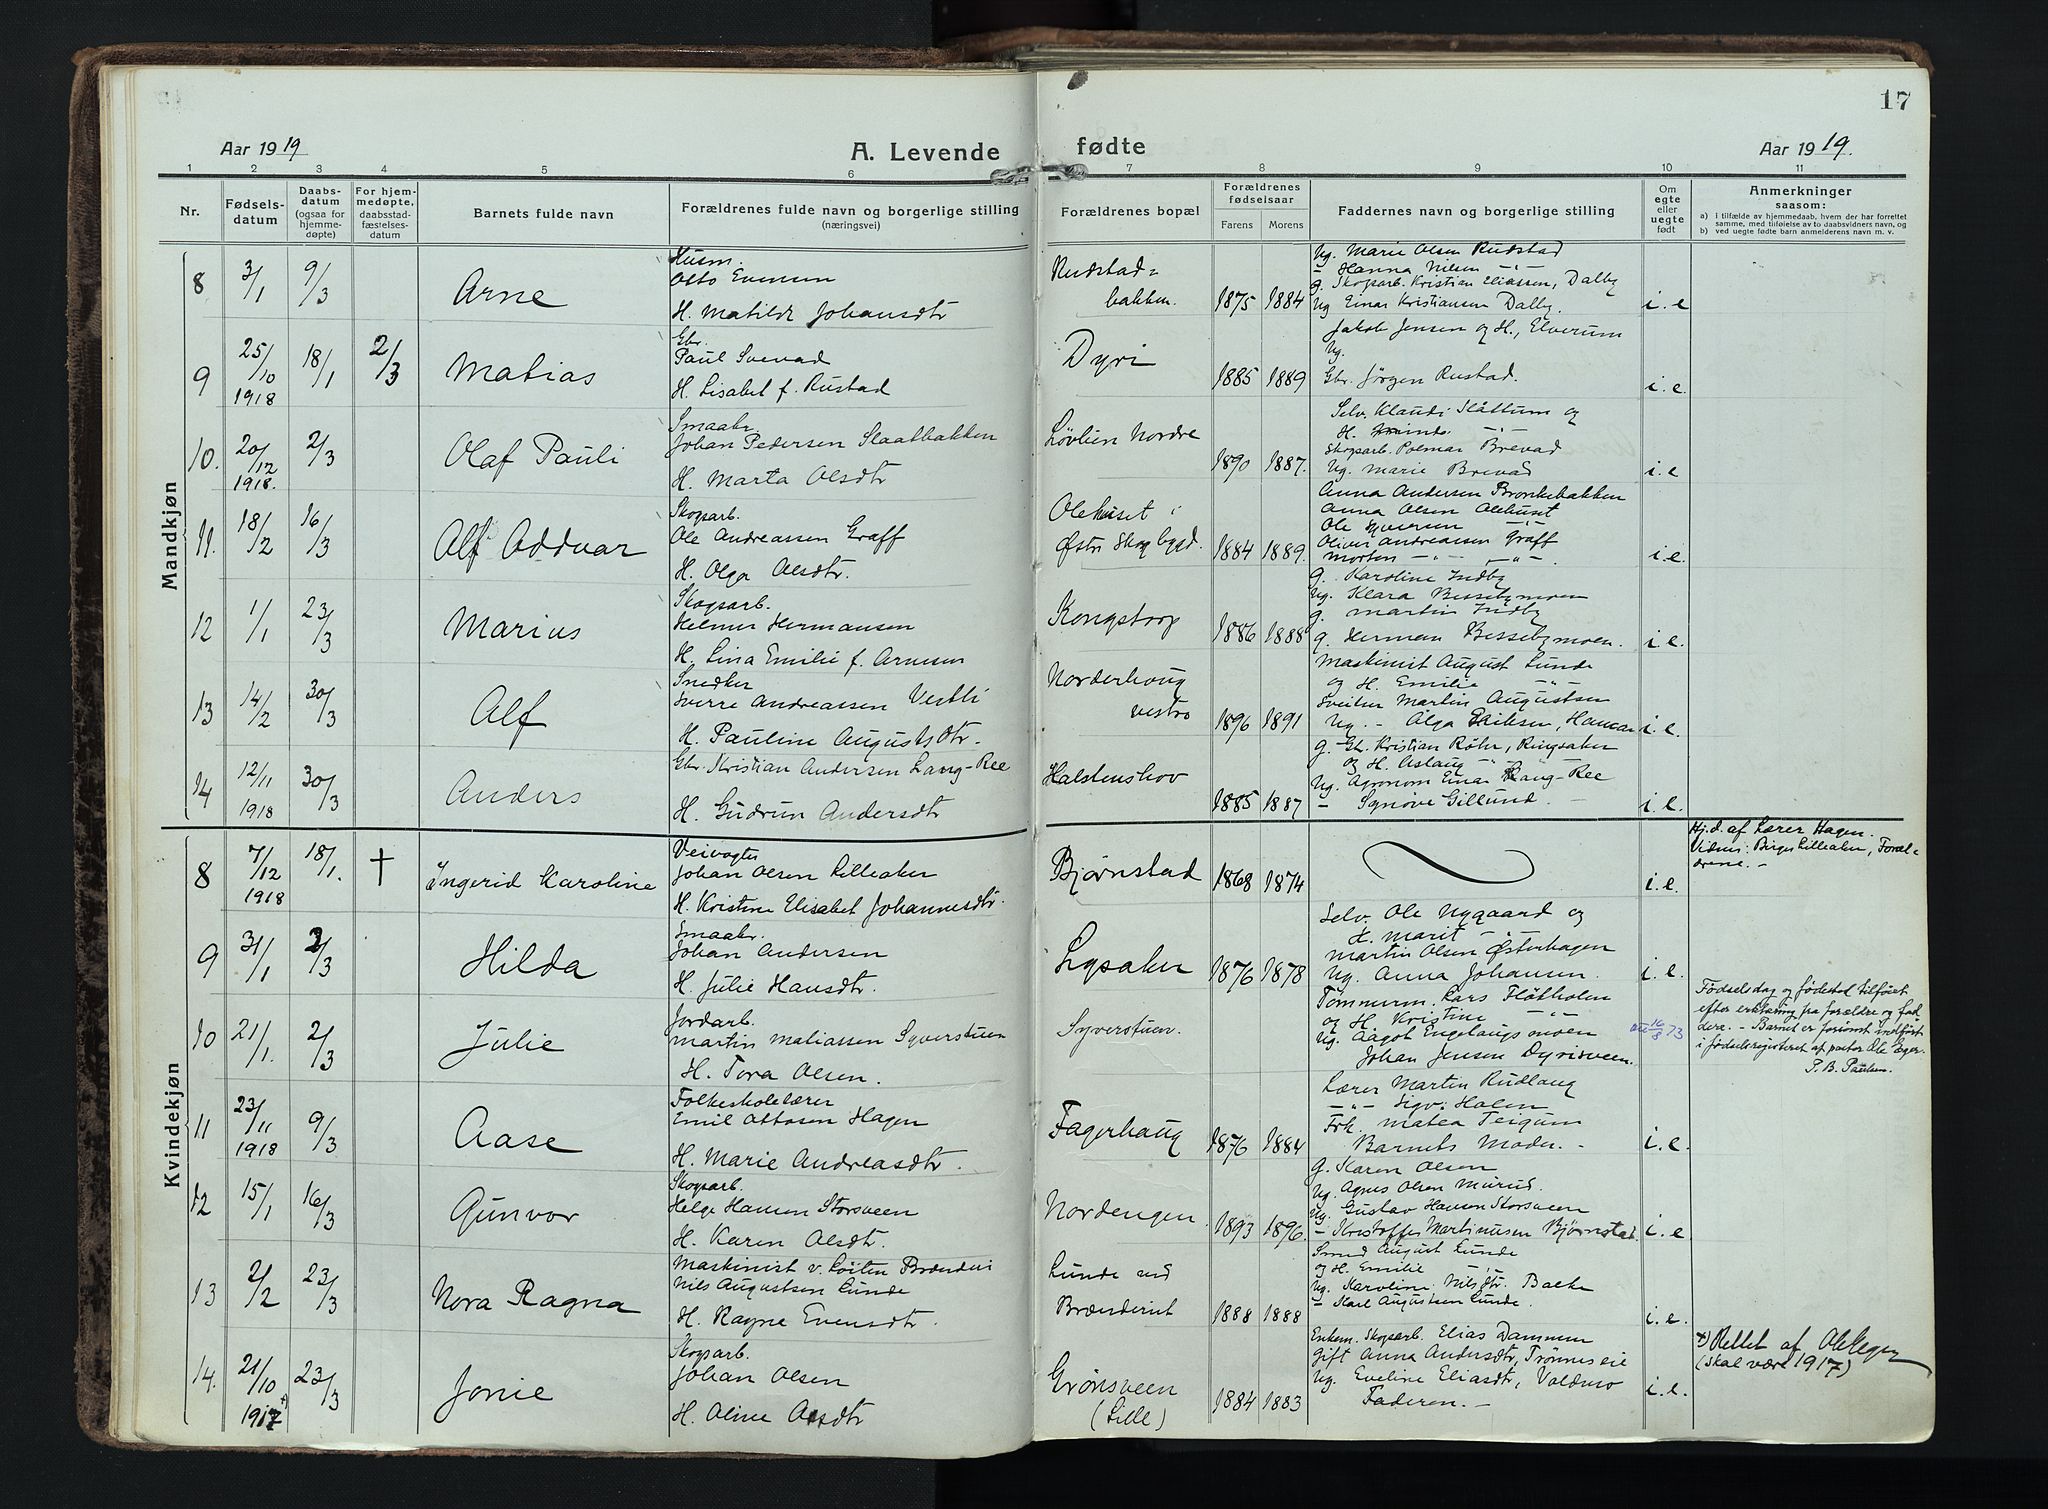 17
Aar 1919
A. Levende fødte
Aar 1919.
1 2 3 4 5 6 7 8 9 10 11
Nr.
Fødsels-
datum
Daabs-
datum
(ogsaa for
hjemme-
døpte)
For hjem-
medøpte,
daabsstad-
fæstelses-
datum
Barnets fulde navn
Forældrenes fulde navn og borgerlige stilling
(næringsvei)
Forældrenes bopæl
Forældrenes
fødselsaar
Farens Morens
Faddernes navn og borgerlige stilling
Om
egte
eller
uegte
født
Anmerkninger
saasom:
a) i tilfælde av hjemmedaab, hvem der har forrettet
samme, med tilføielse av to daabsvidners navn, og
b) ved uegte fødte barn anmelderens navn m. v.
Mandkjøn
8 3/1 9/3 Arne
Husm.
Otto Evensen
H. Matilde Johansdtr
Rudstad=
bakken. 1875 1884
Ug. Marie Olsen Rudstad
- Hanna Nilsen -"-
g. Skogsarb. Kristian Eliassen, Dalby
Ug Einar Kristiansen Dalby.
i. e
9 25/10 1918 18/1 2/3 Matias
Gbr.
Paul Svenad
H. Lisabet f. Rustad
Dyri 1885 1889
Jakob Jensen og H., Elverum
Ug.
Gbr. Jörgen Rustad.
i. e.
10. 20/12 1918. 2/3 Olaf Pauli
Smaabr.
Johan Pedersen Slaatbakken
H. Marta Olsdtr
Løvlien Nordre 1890 1887.
Selv. Klaudi Slåttum og
H. -"-
Skogsarb. Polmar Brevad
Ug. Marie Brevad
i. e
11. 18/2 16/3 Alf Oddvar
Skogsarb.
Ole Andreassen Graff
H. Olga Olsdtr.
Olehuset i
Østre Skogbygd. 1884 1889.
Anna Andersen Bronkebakken
Anna Olsen Olehuset
Ole Syversen -"-
Oliver Andreassen Graff
Morten -"- -"-.
i. e.
12 1/1 23/3 Marius
Skogsarb.
Helmer Hermansen
H. Lina Emilie f. Arnesen
Kongstorp 1886 1888
g. Karoline Indby
Ug. Klara Bessebymoen
g. Martin Indby
g. Herman Bessebymoen.
i. e.
13 14/2 30/3 Alf
Snedker
Sverre Andreassen Vestli
H. Pauline Augustsdtr.
Norderhoug
vestre 1896 1891
Maskinist August Lunde
og H. Emilie -"-
Sveitser Martin Augustsen
Ug. - Olga Eriksen, Hamar
i. e.
14 12/11 1918 30/3 Anders
Gbr. Kristian Andersen Lang-Ree
H. Gudrun Andersdtr
Halstenshov 1885 1887
g. Gbr. Kristian Röhr, Ringsaker
og H. Aslaug -"-
Ug. Agronom Einar Lang-Ree
- Synöve Gillund. -
i. e.
Kvindekjøn
8 7/12 1918 18/1. † Ingerid Karoline
Veivogter
Johan Olsen Lilleaker
H. Kristine Elisabet Johannesdtr.
Bjørnstad 1868 1874
i. e.
Hj. d. af Lærer Hagen.
Vidner: Birger Lilleaker, Foræl-
drene. -
9 31/1 2/3 Hilda
Smaabr.
Johan Andersen
H. Julie Hansdtr.
Lysaker 1876 1878
Selv. Ole Nygaard og
H. Marit -"-
Martin Olsen Østerhagen
Ug. Anna Johansen.
i. e.
10 21/1. 2/3 Julie
Jordarb.
Martin Matiassen Syverstuen
H. Tora Olsen.
Syverstuen.
Tømmerm. Lars Flåtholen
og H. Kristine -"-
Ug. Aagot Engelaugsmoen
Johan Jensen Dyrisveen.
16/8 73
Fødselsdag og fødested tilføiet
efter erklæring fra forældre og fad
dere. - Barnet er forsömt indført
i fødselsregisteret af pastor Ole Eger.
P. B. Paulsen.
11 23/11 1918 9/3 Aase
Folkeskolelærer
Emil Ottosen Hagen
H. Marie Andreasdtr.
Fagerhaug 1876 1884
Lærer Martin Rudlang
-"- Sigv. Holen
Frk. Matea Teigum
Barnets Moder. -
i. e.
12 15/1 16/3 Gunvor
Skogsarb.
Helge Hansen Storsveen
H. Karen Olsdtr.
Nordengen. 1893 1896.
g. Karen Olsen
Ug. Agnes Olsen Murud.
Ug. Gustav Hansen Storsveen
- Kristoffer Martinusen Bjørnstad.
i. e
13 2/2 23/3 Nora Ragna
Maskinist v. Løiten Brænderi
Nils Augustsen Lunde
H. Ragne Evensdtr.
Lunde ved
Brænderiet 1888 1888
Smed August Lunde
og H. Emilie -"-
Ug. Karoline Nilsdtr. Balke
- Karl Augustsen Lunde.
i. e.
14. 21/10 1917 +) 23/3 Jonie
Skogsarb.
Johan Olsen
H. Oline Olsdtr
Grønsveen
(Lille) 1884 1883
Enkem. Skogsarb. Elias Dammen
Gift Anna Andersdtr, Trønneseie
Ug. Eveline Eliasdtr, Voldmo
Faderen. -
i. e.
+) Rettet af Ole Eger
(skal være 1917)